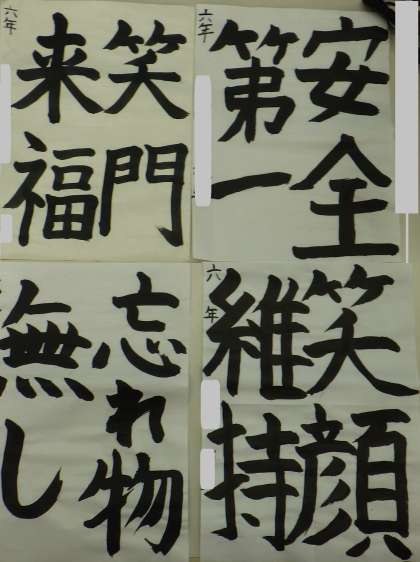 笑門
来福
六年
安全
第一
六年
忘れ物
無し
笑顔
維持
六年